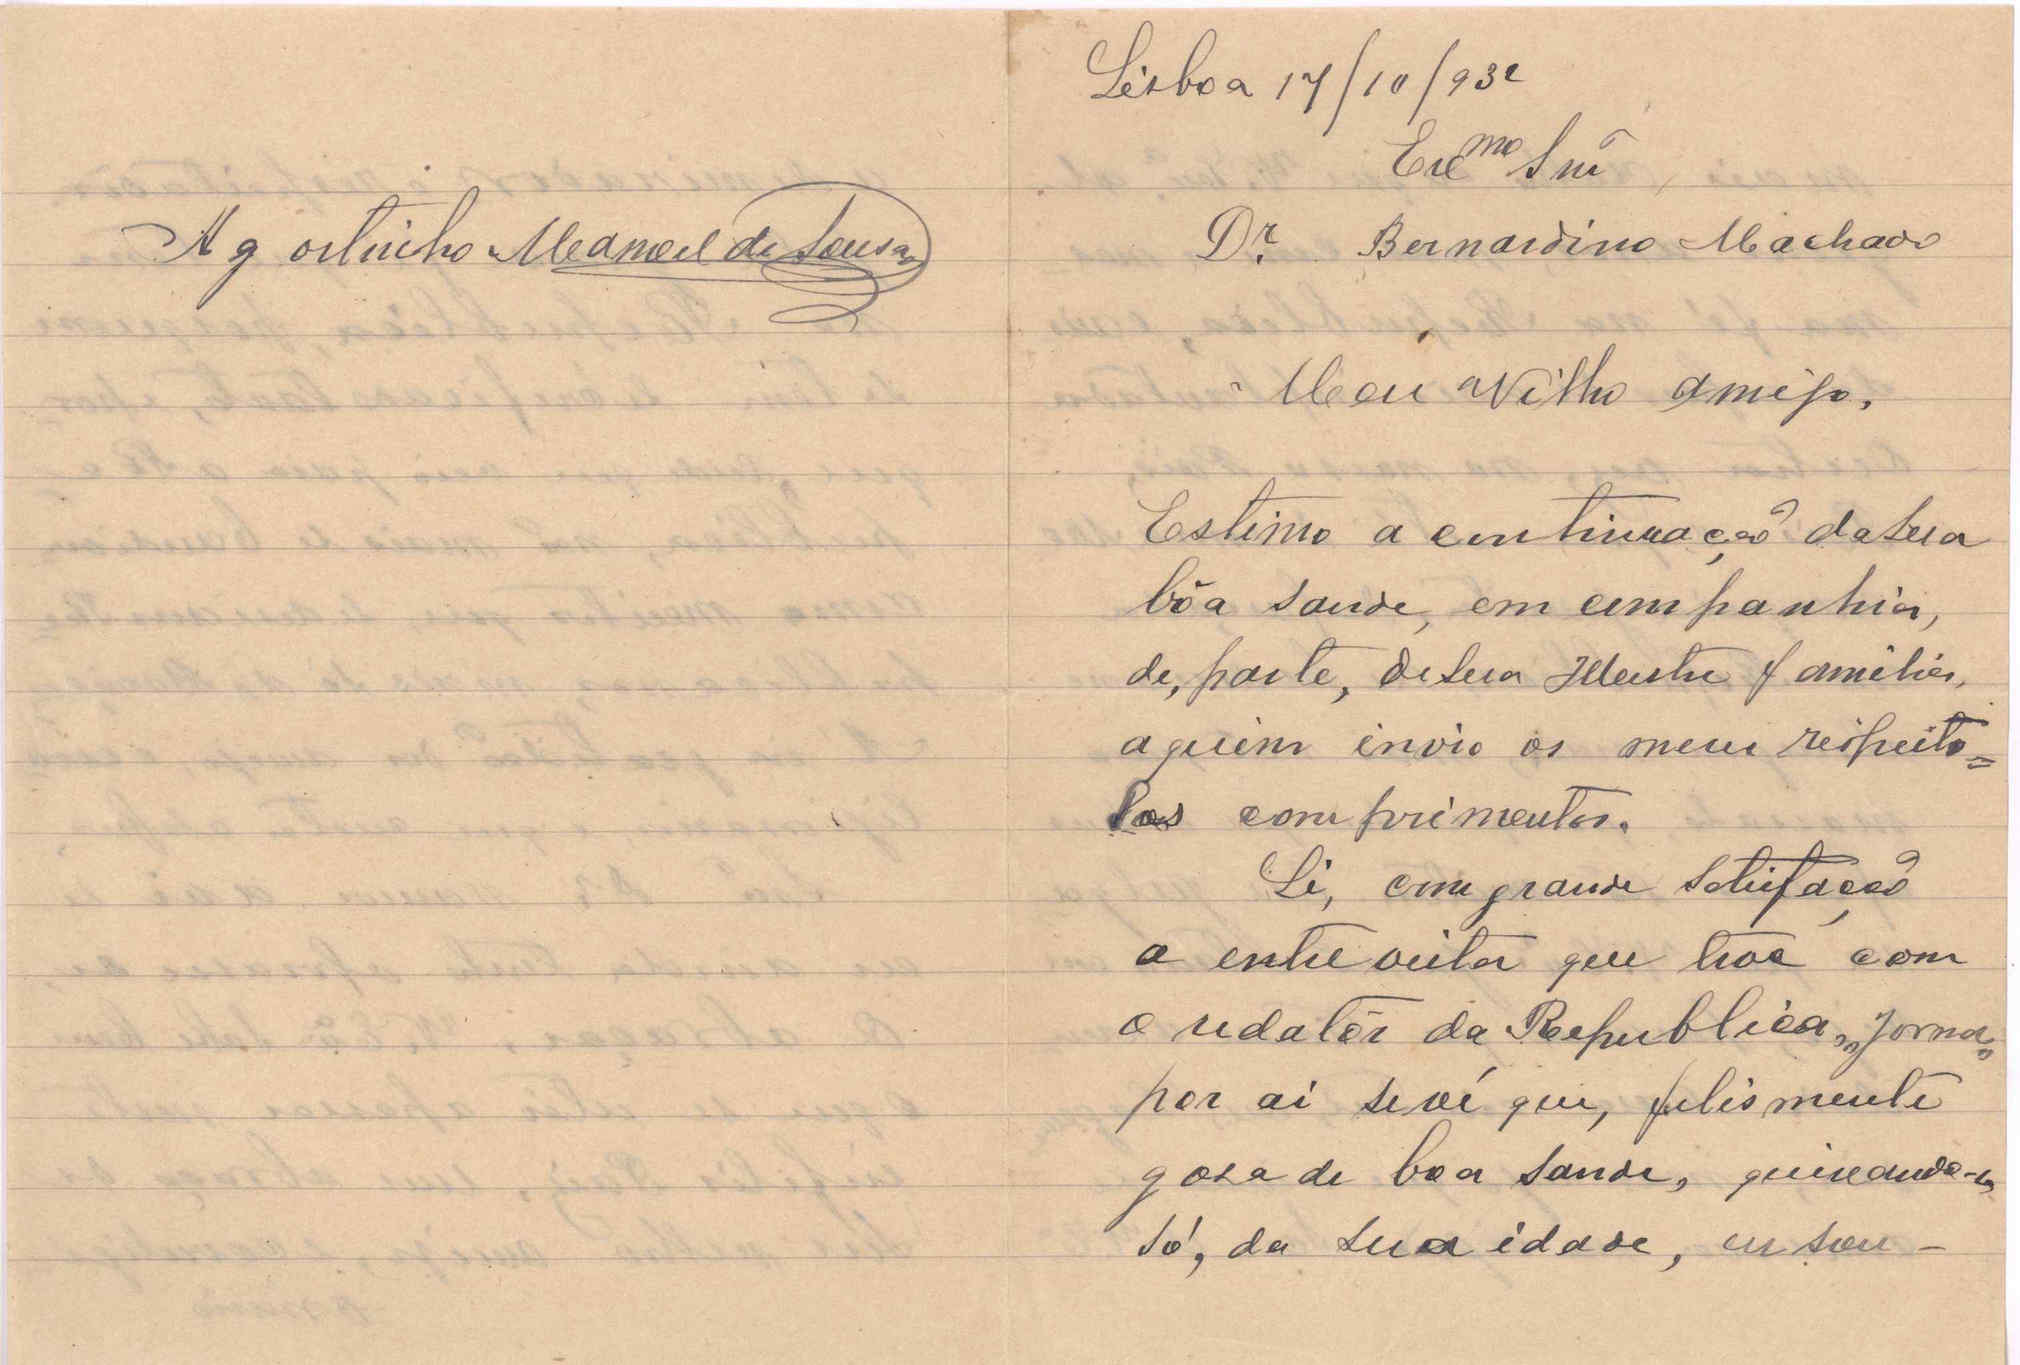 Lisboa 17/10/932
Exmo Snr
Dr. Bernardino Machado
Meu Vilho Amigo,
Estimo a continuação da sua
bôa saude, em companhia,
de, parte, de sua Illustre familia,
aquem invio os meus respeito=
sos comprimentos.
Li, com grande satisfação
a entrevista que teve com
o redatôr da Republica, "Jornal"
por ai se vê que, felismente
gosa de boa saude, queixando-se
só, da sua idade, eu sou -
Agostinho Manoel de Sousa